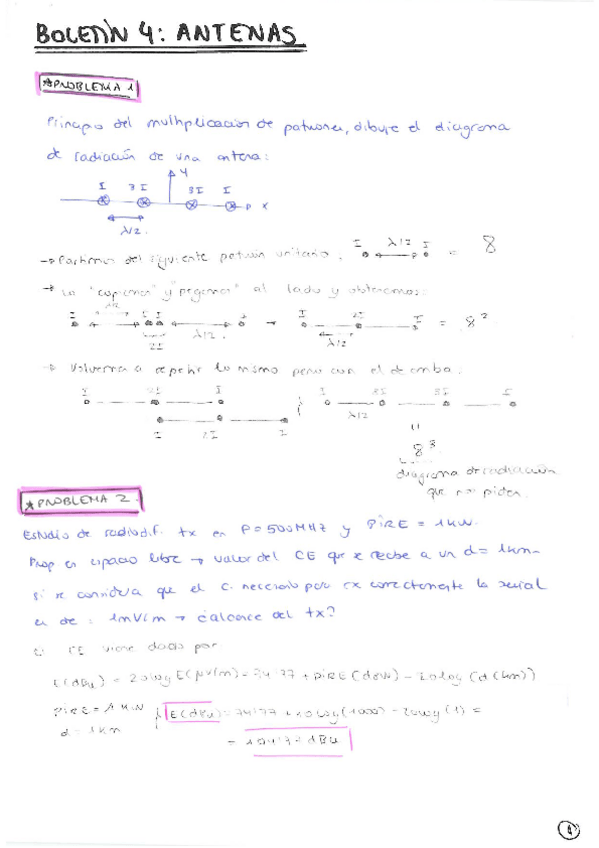 BOLETÍN 4: ANTENAS
*PROBLEMA 1
Principio del multiplicación de patrones, dibuje el diagrama
de radiación de una antena:
Y
I 3I 3I I
x
λ/2.
→ Partimos del siguiente patrón unitario: I λ/2 I = 8
→ Lo "copiamos" y "pegamos" al lado y obtenemos:
I I I I → I 2I I = 8²
2I λ/2. λ/2
→ Volvemos a repetir lo mismo pero con el de arriba:
I 2I I I 3I 3I I
λ/2
I 2I I
8³
diagrama de radiación
que nos piden.
*PROBLEMA 2.
Estudio de radiodif. tx en P=500MHz y PIRE = 1KW.
Prop en espacio libre → valor del CE que se recibe a un d= 1km.
si se considera que el C. necesario para rx correctamente la señal
es de: 1mV/m → ¿alcance del tx?
CE viene dado por
E(dBu) = 20log E(μV/m) = 74'77 + PIRE (dBW) - 20log (d (km))
PIRE = 1KW
d = 1km
E(dBu) = 74'77 + 10log(1000) - 20log(1) =
= 104'77 dBu
1